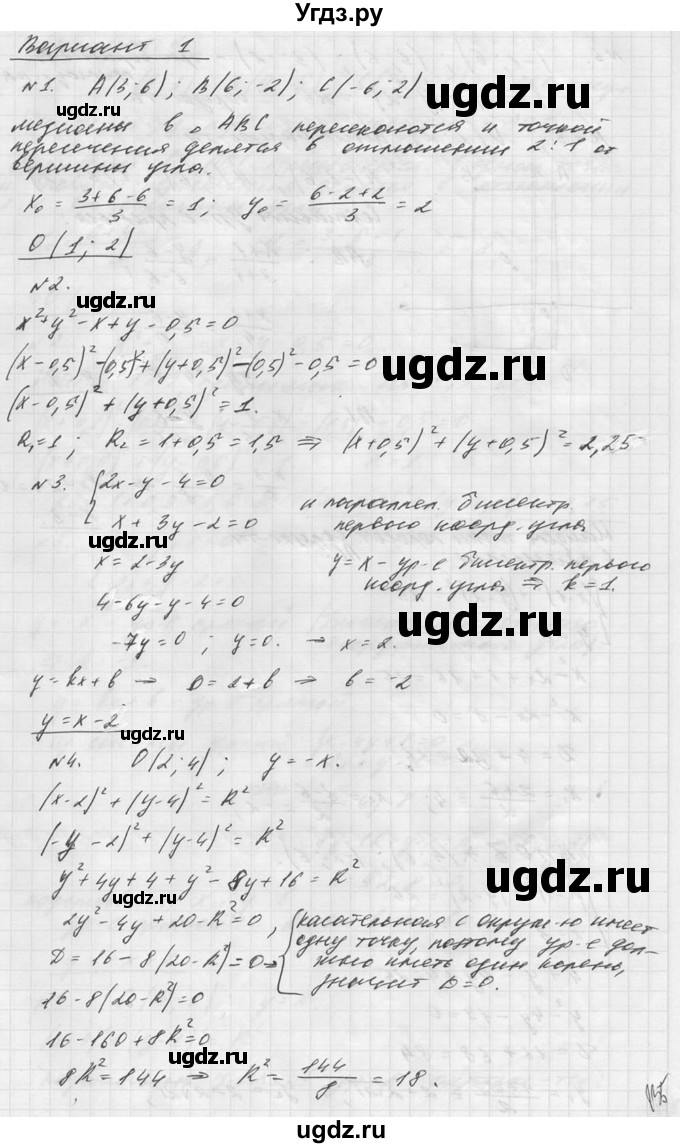 Угдз.ру
Вариант 1
№1. A(3;6); B(6;-2); C(-6;2)
ugdz.ru
медианы в △ABC пересекаются и точкой
пересечения делятся в отношении 2:1 от
вершины угла.
x₀ = (3+6-6)/3 = 1; y₀ = (6-2+2)/3 = 2
O(1; 2)
№2.
ugdz.ru
x²+y²-x+y-0,5=0
(x-0,5)²-(0,5)²+(y+0,5)²-(0,5)²-0,5=0
ugdz.ru
(x-0,5)²+(y+0,5)²=1.
R₁=1; R₂=1+0,5=1,5 ⇒ (x+0,5)²+(y+0,5)²=2,25
ugdz.ru
№3. { 2x-y-4=0
x+3y-2=0
и параллел. биссектр.
первого коорд. угла
x=2-3y
y=x - ур-е биссектр. первого
коорд. угла ⇒ k=1.
4-6y-y-4=0
ugdz.ru
-7y=0; y=0. → x=2.
y=kx+b → 0=2+b ⇒ b=-2
y=x-2
ugdz.ru
№4. O(2;4); y=-x.
(x-2)²+(y-4)²=R²
(-y-2)²+(y-4)²=R²
ugdz.ru
y²+4y+4+y²-8y+16=R²
2y²-4y+20-R²=0,
D=16-8(20-R²)=0→
{ касательная с окруж-ю имеет
одну точку, поэтому ур-е дол-
жно иметь один корень,
значит D=0.
ugdz.ru
16-8(20-R²)=0
16-160+8R²=0
ugdz.ru
8R²=144 ⇒ R²=144/8=18.
ugdz.ru